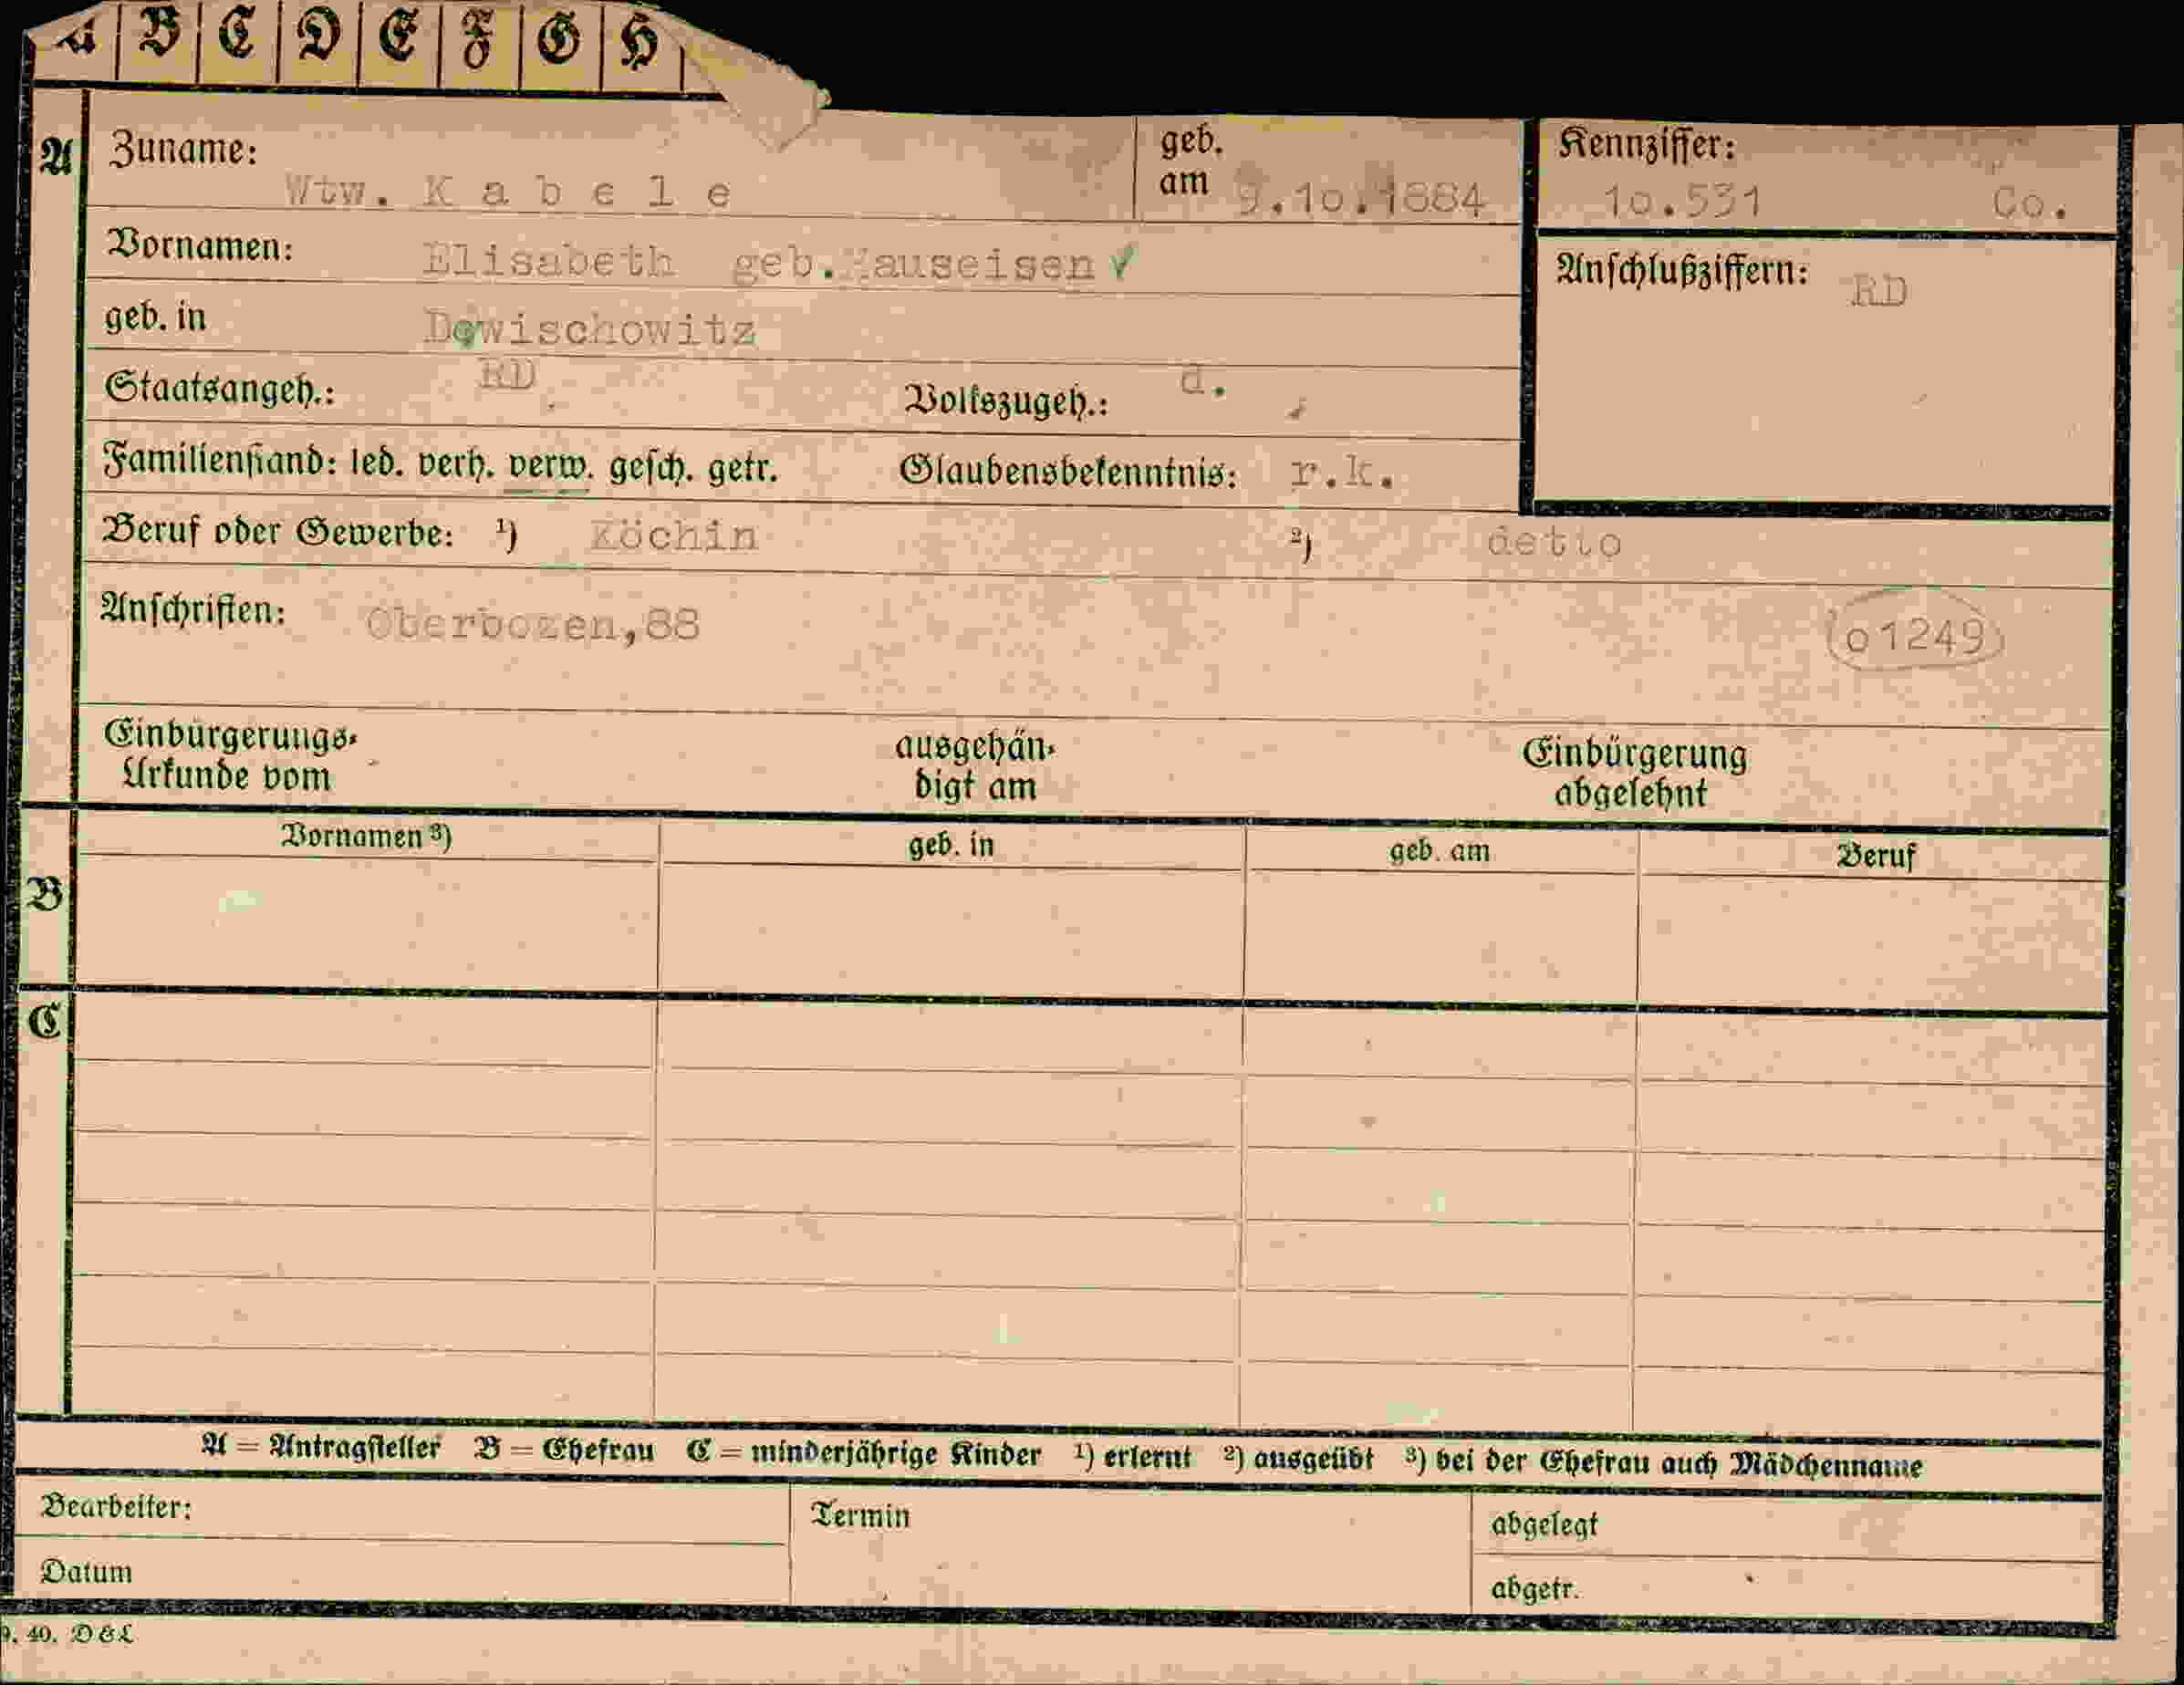 A B C D E F G H
A Zuname: Wtw. K a b e l e geb. am 9.10.1884 Kennziffer: 10.531 Co.
Vornamen: Elisabeth geb. Anschlußziffern: RD
geb. in Dowischowitz
Staatsangeh.: RD Volkszugeh.: d.
Familienstand: led. verh. verw. gesch. getr. Glaubensbekenntnis: r.k.
Beruf oder Gewerbe: ¹) Köchin ²) detto
Anschriften: Oberbozen,88 o1249
Einbürgerungs-
Urkunde vom
ausgehän-
digt am
Einbürgerung
abgelehnt
Vornamen ³) geb. in geb. am Beruf
B
C
A = Antragsteller B = Ehefrau C = minderjährige Kinder ¹) erlernt ²) ausgeübt ³) bei der Ehefrau auch Mädchenname
Bearbeiter: Termin abgelegt
Datum abgetr.
9. 40. D&L